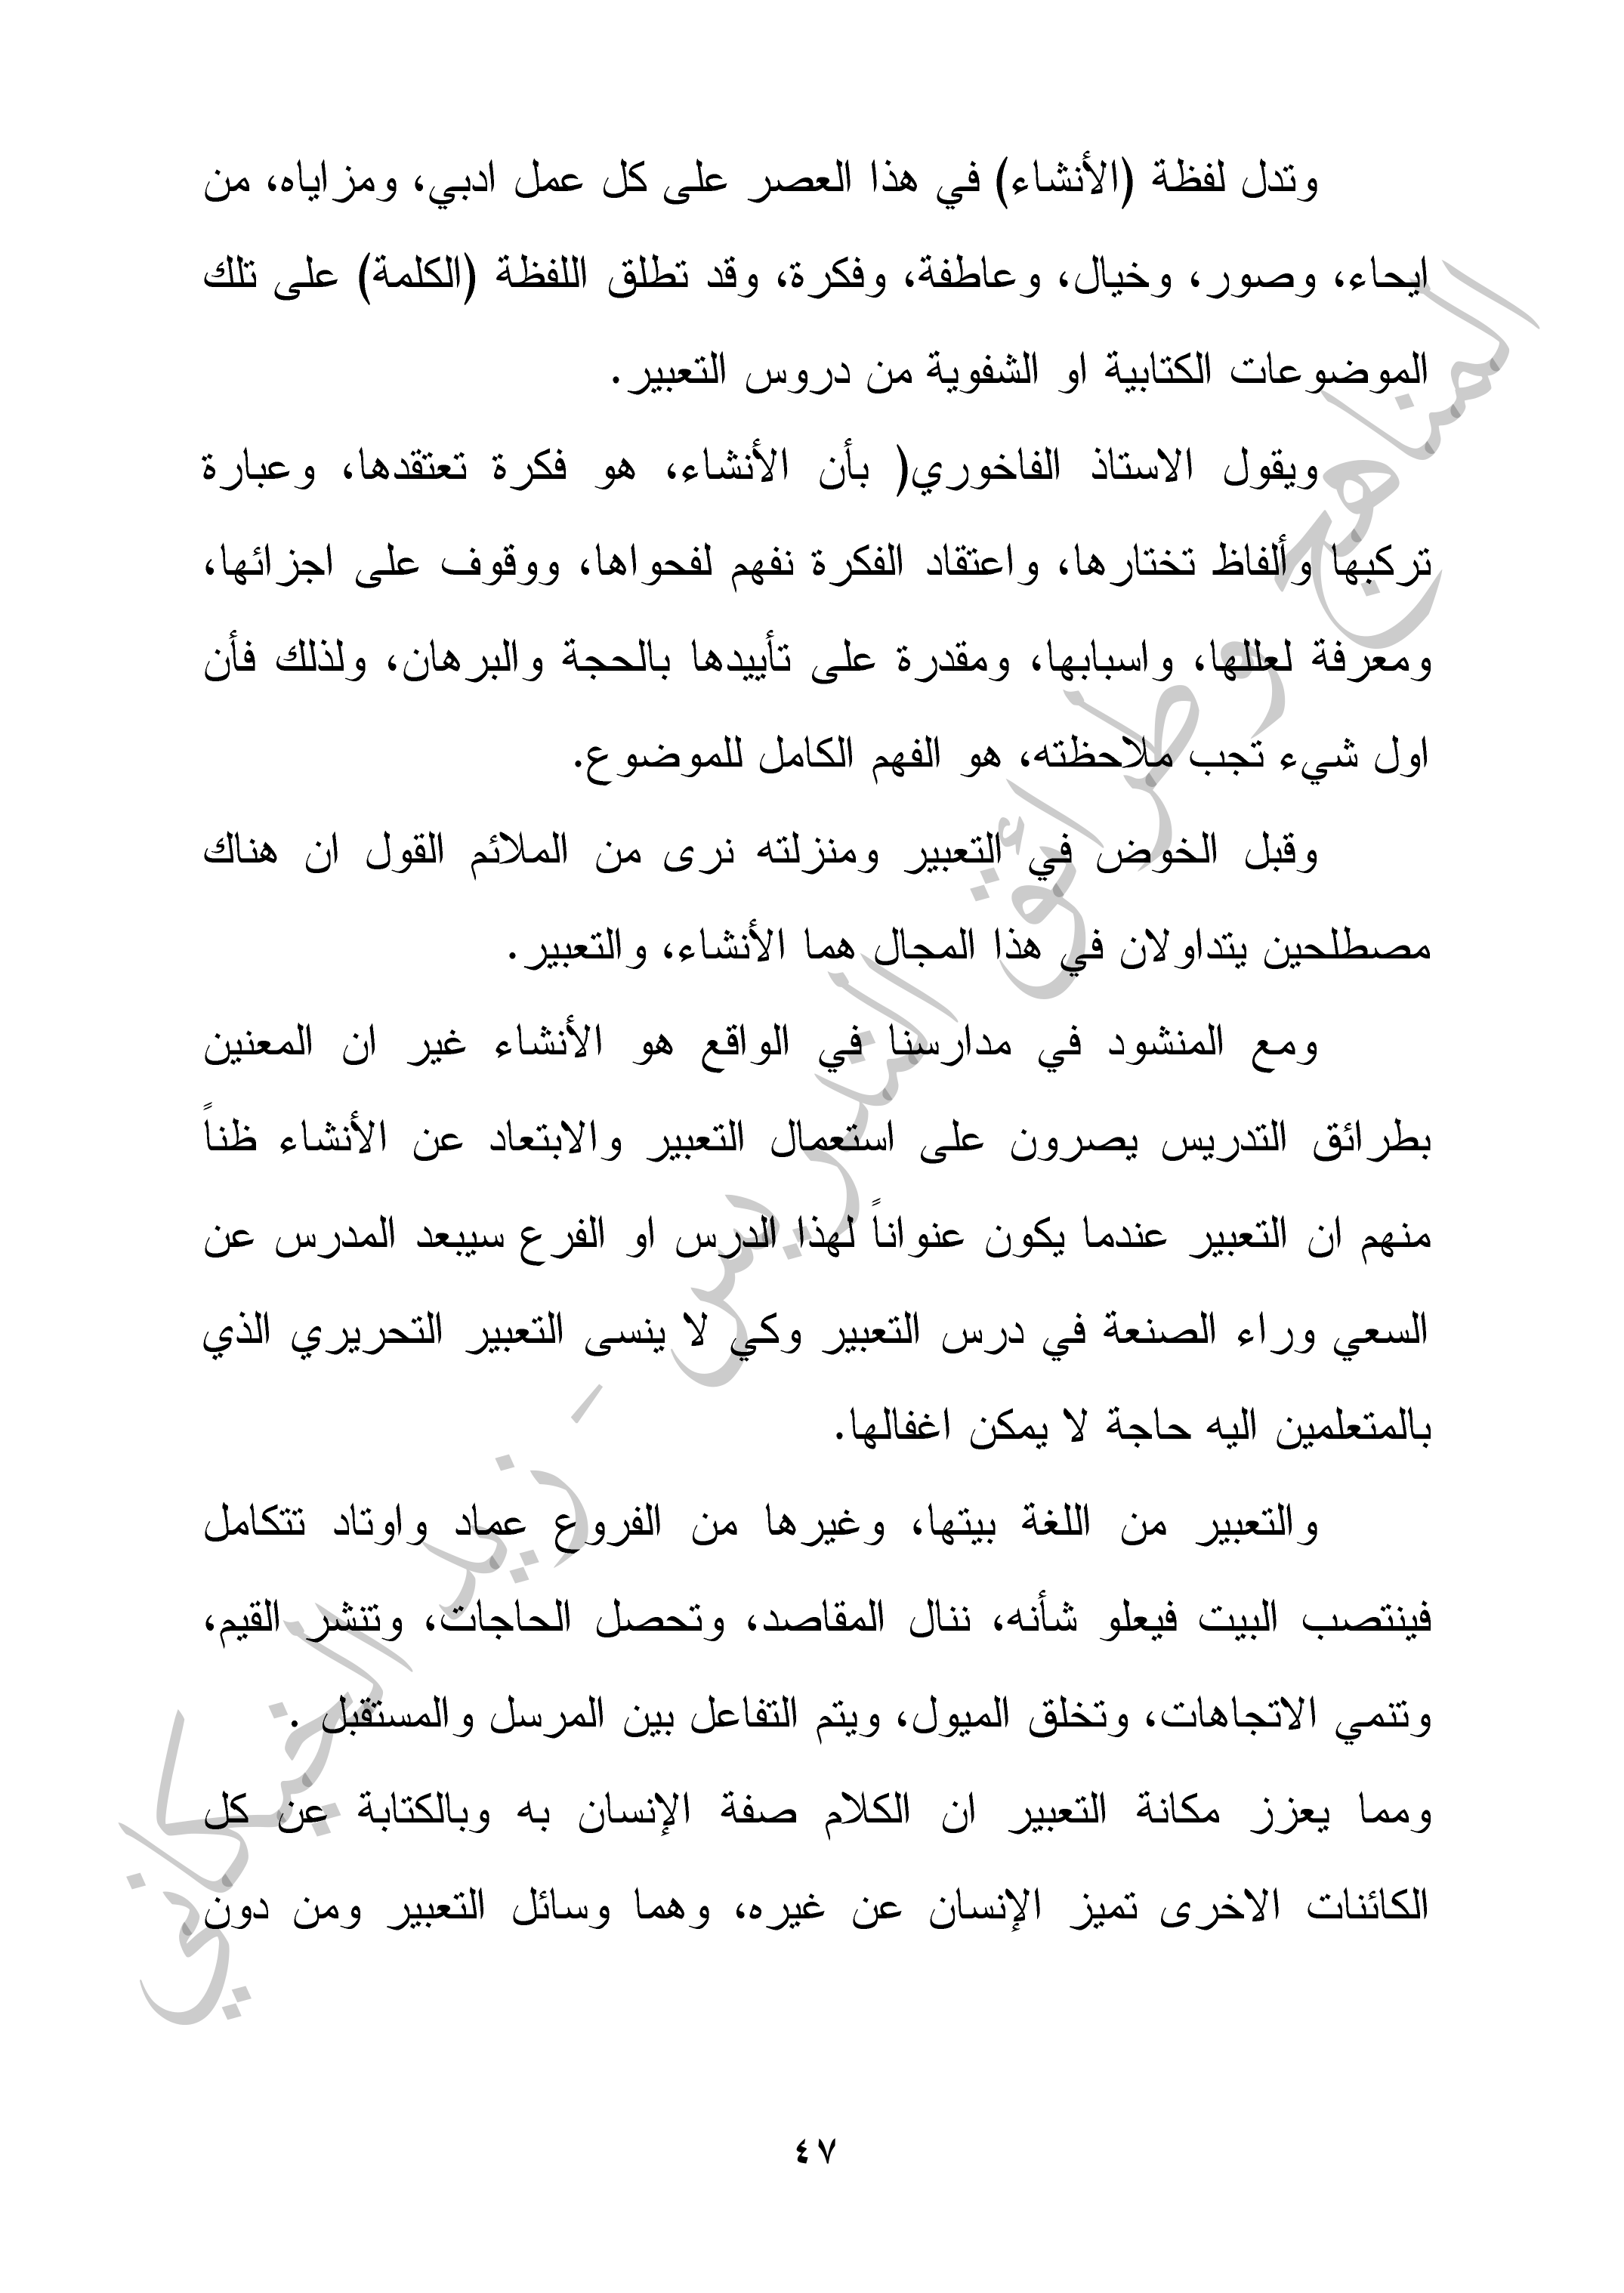 وتدل لفظة (الأنشاء) في هذا العصر على كل عمل ادبي، ومزاياه، من
ايحاء، وصور، وخيال، وعاطفة، وفكرة، وقد تطلق اللفظة (الكلمة) على تلك
الموضوعات الكتابية او الشفوية من دروس التعبير.
ويقول الاستاذ الفاخوري( بأن الأنشاء، هو فكرة تعتقدها، وعبارة
تركبها وألفاظ تختارها، واعتقاد الفكرة نفهم لفحواها، ووقوف على اجزائها،
ومعرفة لعللها، واسبابها، ومقدرة على تأييدها بالحجة والبرهان، ولذلك فأن
اول شيء تجب ملاحظته، هو الفهم الكامل للموضوع.
وقبل الخوض في التعبير ومنزلته نرى من الملائم القول ان هناك
مصطلحين يتداولان في هذا المجال هما الأنشاء، والتعبير.
ومع المنشود في مدارسنا في الواقع هو الأنشاء غير ان المعنين
بطرائق التدريس يصرون على استعمال التعبير والابتعاد عن الأنشاء ظناً
منهم ان التعبير عندما يكون عنواناً لهذا الدرس او الفرع سيبعد المدرس عن
السعي وراء الصنعة في درس التعبير وكي لا ينسى التعبير التحريري الذي
بالمتعلمين اليه حاجة لا يمكن اغفالها.
والتعبير من اللغة بيتها، وغيرها من الفروع عماد واوتاد تتكامل
فينتصب البيت فيعلو شأنه، ننال المقاصد، وتحصل الحاجات، وتنشر القيم،
وتنمي الاتجاهات، وتخلق الميول، ويتم التفاعل بين المرسل والمستقبل .
ومما يعزز مكانة التعبير ان الكلام صفة الإنسان به وبالكتابة عن كل
الكائنات الاخرى تميز الإنسان عن غيره، وهما وسائل التعبير ومن دون
المناهج وطرائق التدريس - زيد الخيكاني
٤٧